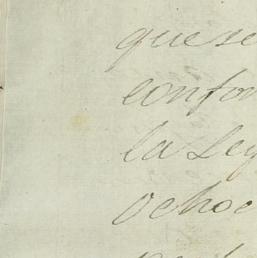 que se
confor
la Ley
ochoc